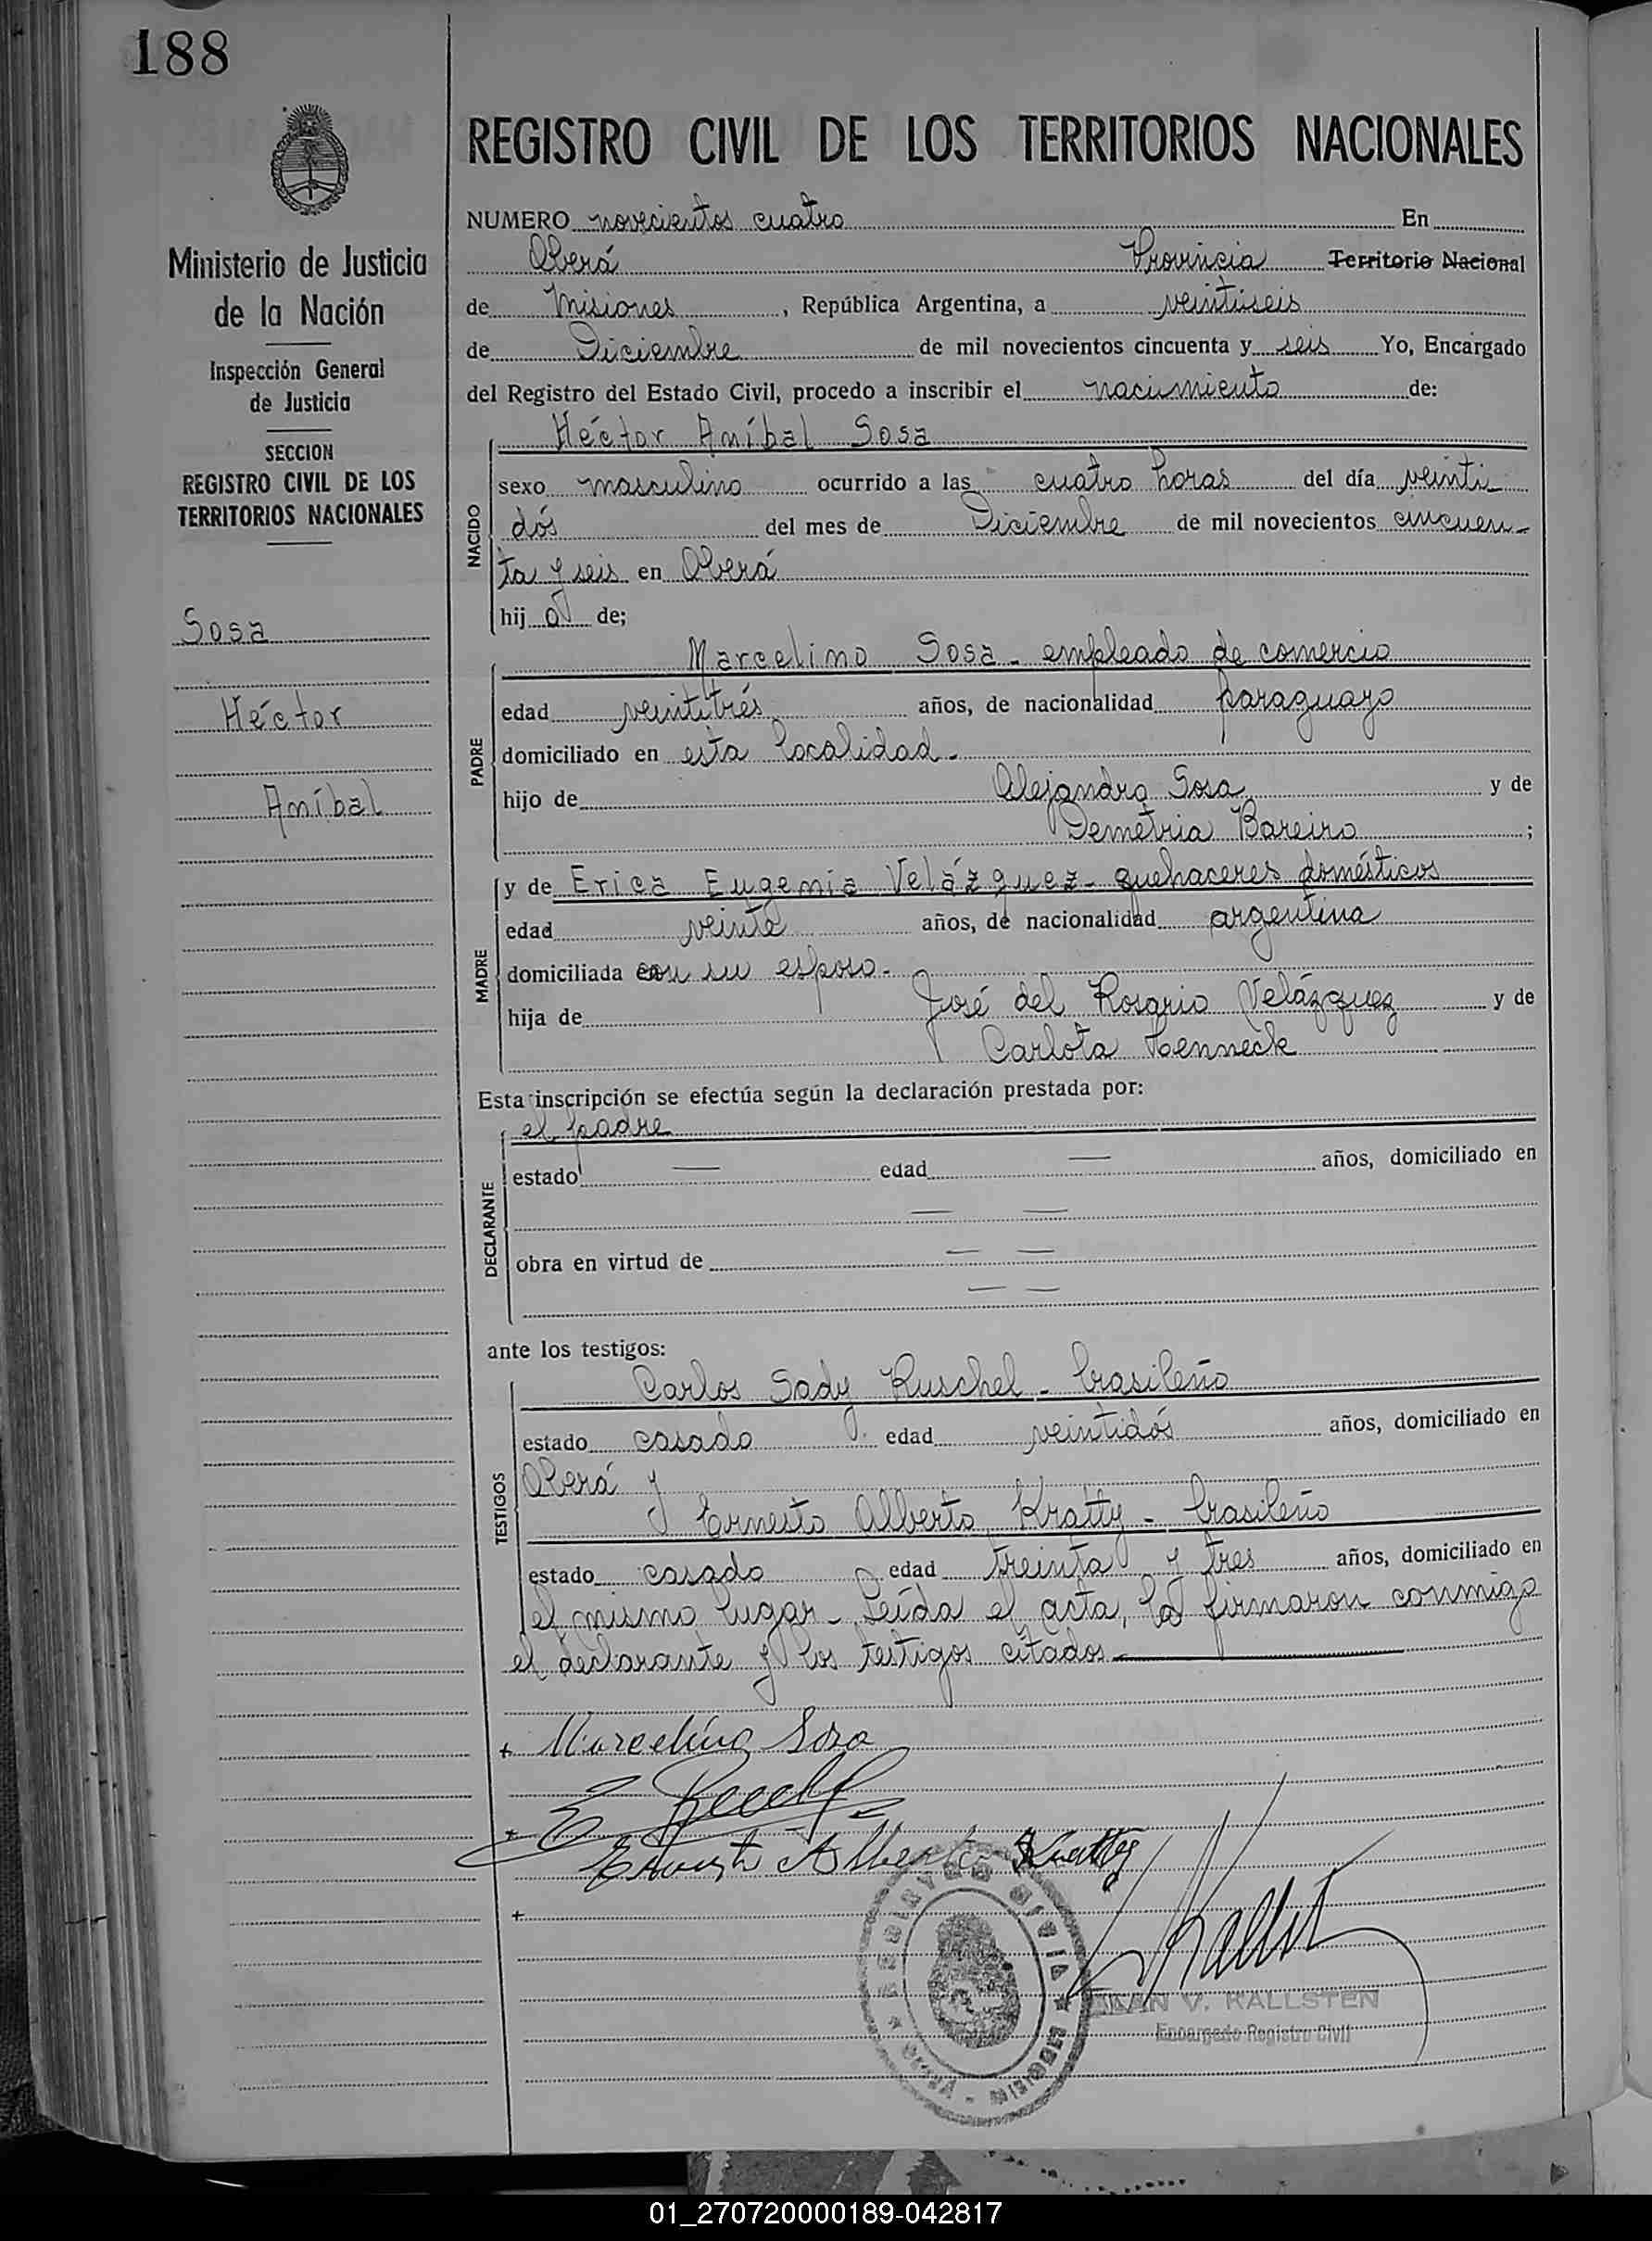 188
REGISTRO CIVIL DE LOS TERRITORIOS NACIONALES
Ministerio de Justicia
de la Nación
Inspección General
de Justicia
SECCION
REGISTRO CIVIL DE LOS
TERRITORIOS NACIONALES
Sosa
Héctor
Aníbal
NUMERO novecientos cuatro En
Oberá Provincia Territorio Nacional
de Misiones, República Argentina, a veintiseis
de Diciembre de mil novecientos cincuenta y seis Yo, Encargado
del Registro del Estado Civil, procedo a inscribir el nacimiento de:
NACIDO
Héctor Aníbal Sosa
sexo masculino ocurrido a las cuatro horas del día veinti
dós del mes de Diciembre de mil novecientos cincuen-
ta y seis en Oberá
hijo de;
PADRE
Marcelino Sosa - empleado de comercio
edad veintitrés años, de nacionalidad paraguayo
domiciliado en esta localidad.-
hijo de Alejandro Sosa y de
Demetria Bareiro;
MADRE
y de Erica Eugenia Velázquez - quehaceres domésticos
edad veinte años, de nacionalidad argentina
domiciliada con su esposo.-
hija de José del Rosario Velázquez y de
Carlota Henneck
Esta inscripción se efectúa según la declaración prestada por:
DECLARANTE
el padre
estado — edad — años, domiciliado en
— —
obra en virtud de — —
— —
ante los testigos:
TESTIGOS
Carlos Sady Kuschel - brasileño
estado casado edad veintidós años, domiciliado en
Oberá y
Ernesto Alberto Kratty - brasileño
estado casado edad treinta y tres años, domiciliado en
el mismo lugar - Leída el acta, la firmaron conmigo
el declarante y los testigos citados.-
+ Marcelino Sosa
+
Ernesto Alberto Kratty
+
REGISTRO CIVIL
OBERÁ - MISIONES
Kallst
V. KALLSTEN
Encargado Registro Civil
01_270720000189-042817